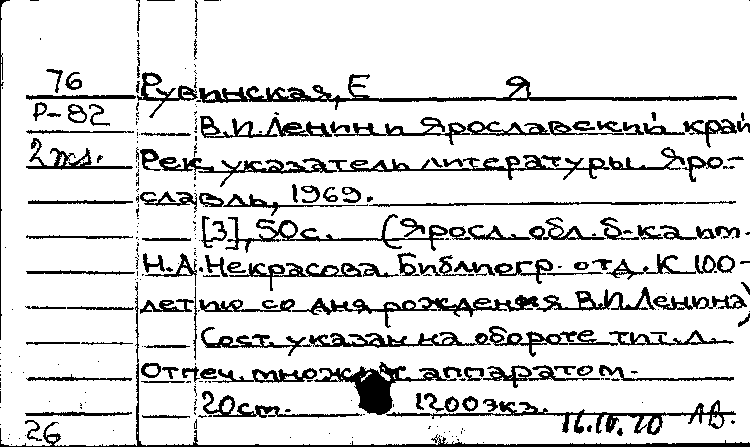 76 Рувинская, Е Я
Р-82 В.И.Ленин и Ярославский край
2 экз. Рек. указатель литературы. Яро-
славль, 1969.
[3], 50с. (Яросл. обл. б-ка им.
Н.А.Некрасова. Библиогр. отд. К 100-
летию со дня рождения В.И.Ленина)
Сост. указан на обороте тит. л.
Отпеч. множит. аппаратом.
20см. 1200экз. 16.IV.70 АВ.
26